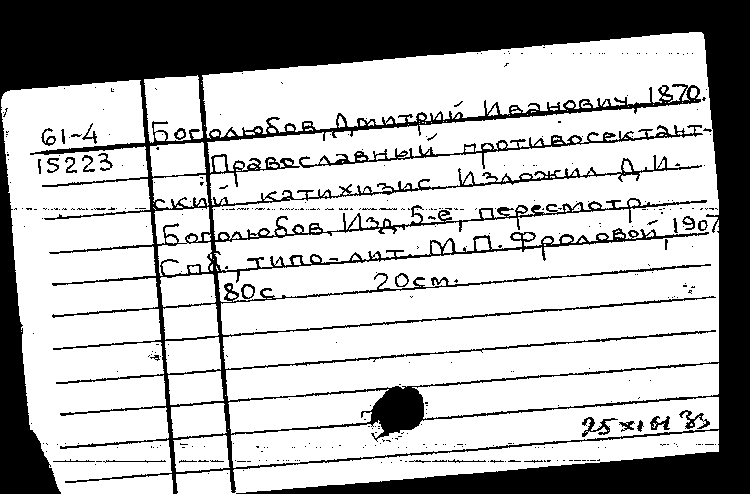 61-4 Боголюбов, Дмитрий Иванович, 1870.
15223 Православный противосектант-
ский катихизис. Изложил Д.И.
Боголюбов. Изд. 5-е, пересмотр.
Спб., типо-лит. М.П. Фроловой, 1907
80с. 20см.
25 XI 61